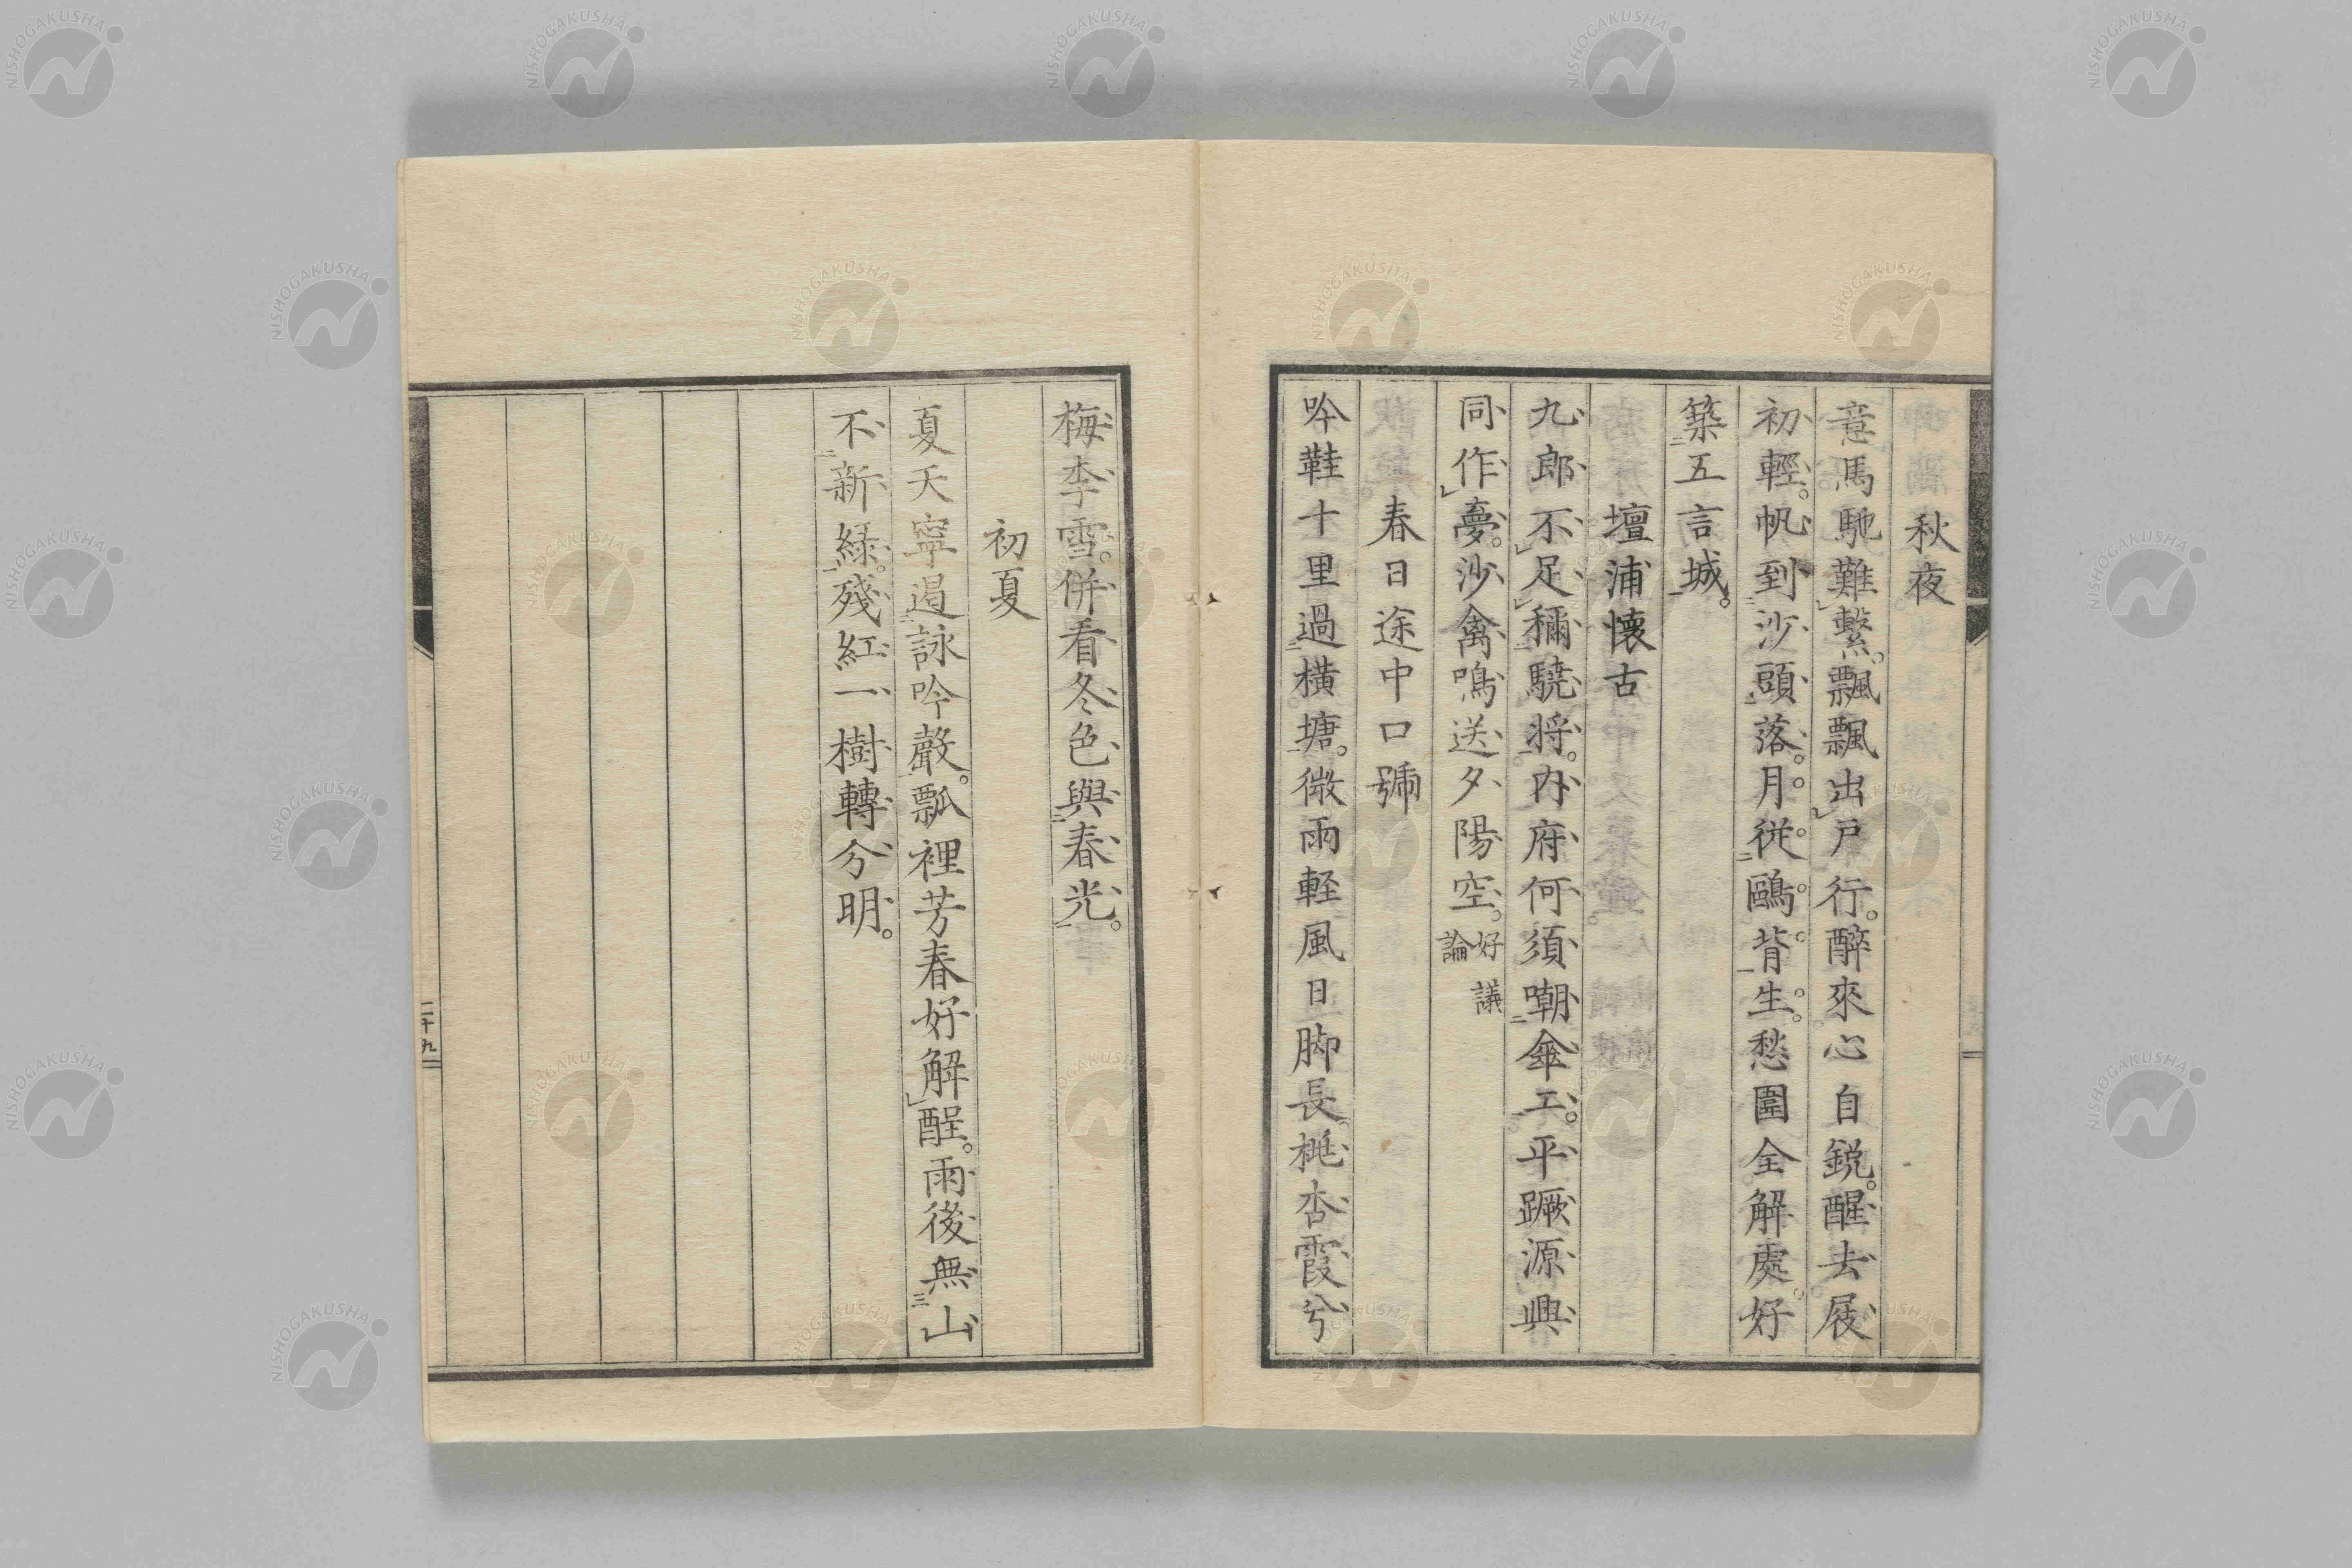 秋夜
意馬馳難繫。飄飄出戸行。醉來心自鋭。醒去屐
初輕。帆到沙頭落。月從鷗背生。愁圍全解處。好
築五言城。
壇浦懐古
九郎不足稱驍将。内府何須嘲傘工。平蹶源興
同作夢。沙禽鳴送夕陽空。好議論
春日途中口號
吟鞋十里過橫塘。微雨軽風日脚長。桃杏霞兮
梅李雪。併看冬色與春光。
初夏
夏天寧遏詠吟聲。瓢裡芳春好解酲。雨後無山
不新綠。殘紅一樹轉分明。
二十九
NISHOGAKUSHA